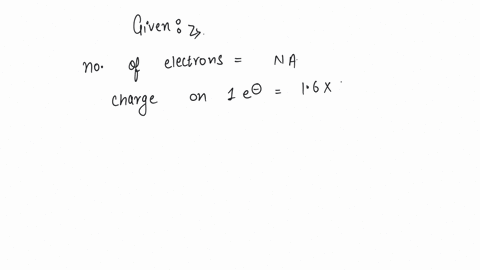 Given :
no. of electrons = NA
charge on 1 e⊖ = 1.6 x